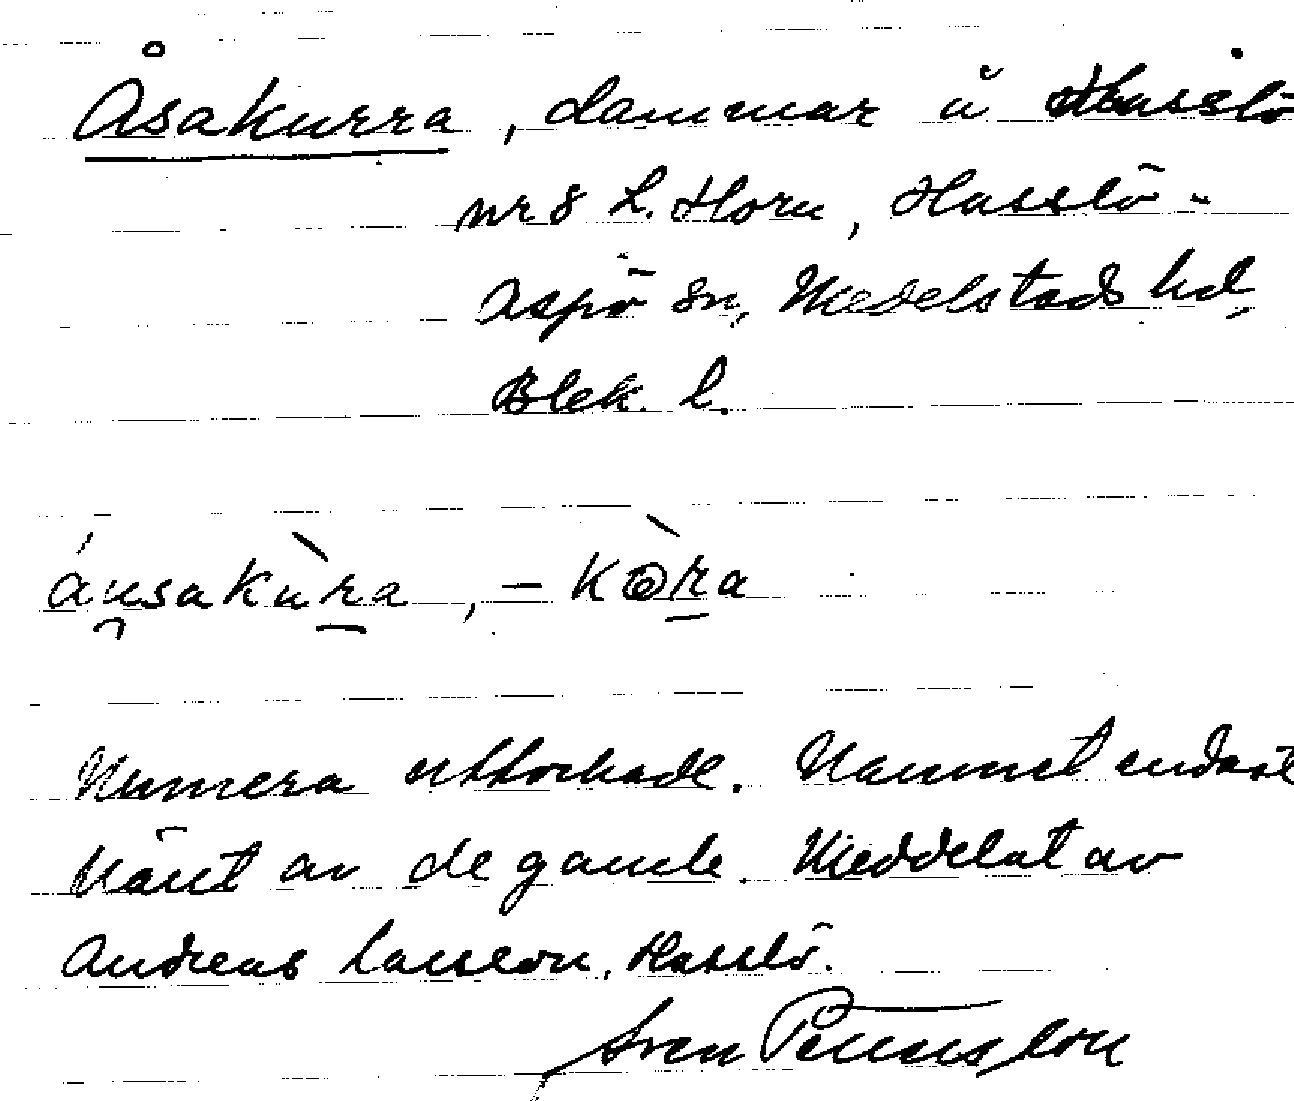 Åsakurra, dammar å Hasslö
nr 8 L. Horn, Hasslö-
Aspö sn, Medelstads hd,
Blek. l.
áu̯sakùra, - kòra
Numera uttorkade. Namnet endast
känt av de gamle. Meddelat av
Andreas Larsson, Hasslö.
Sven